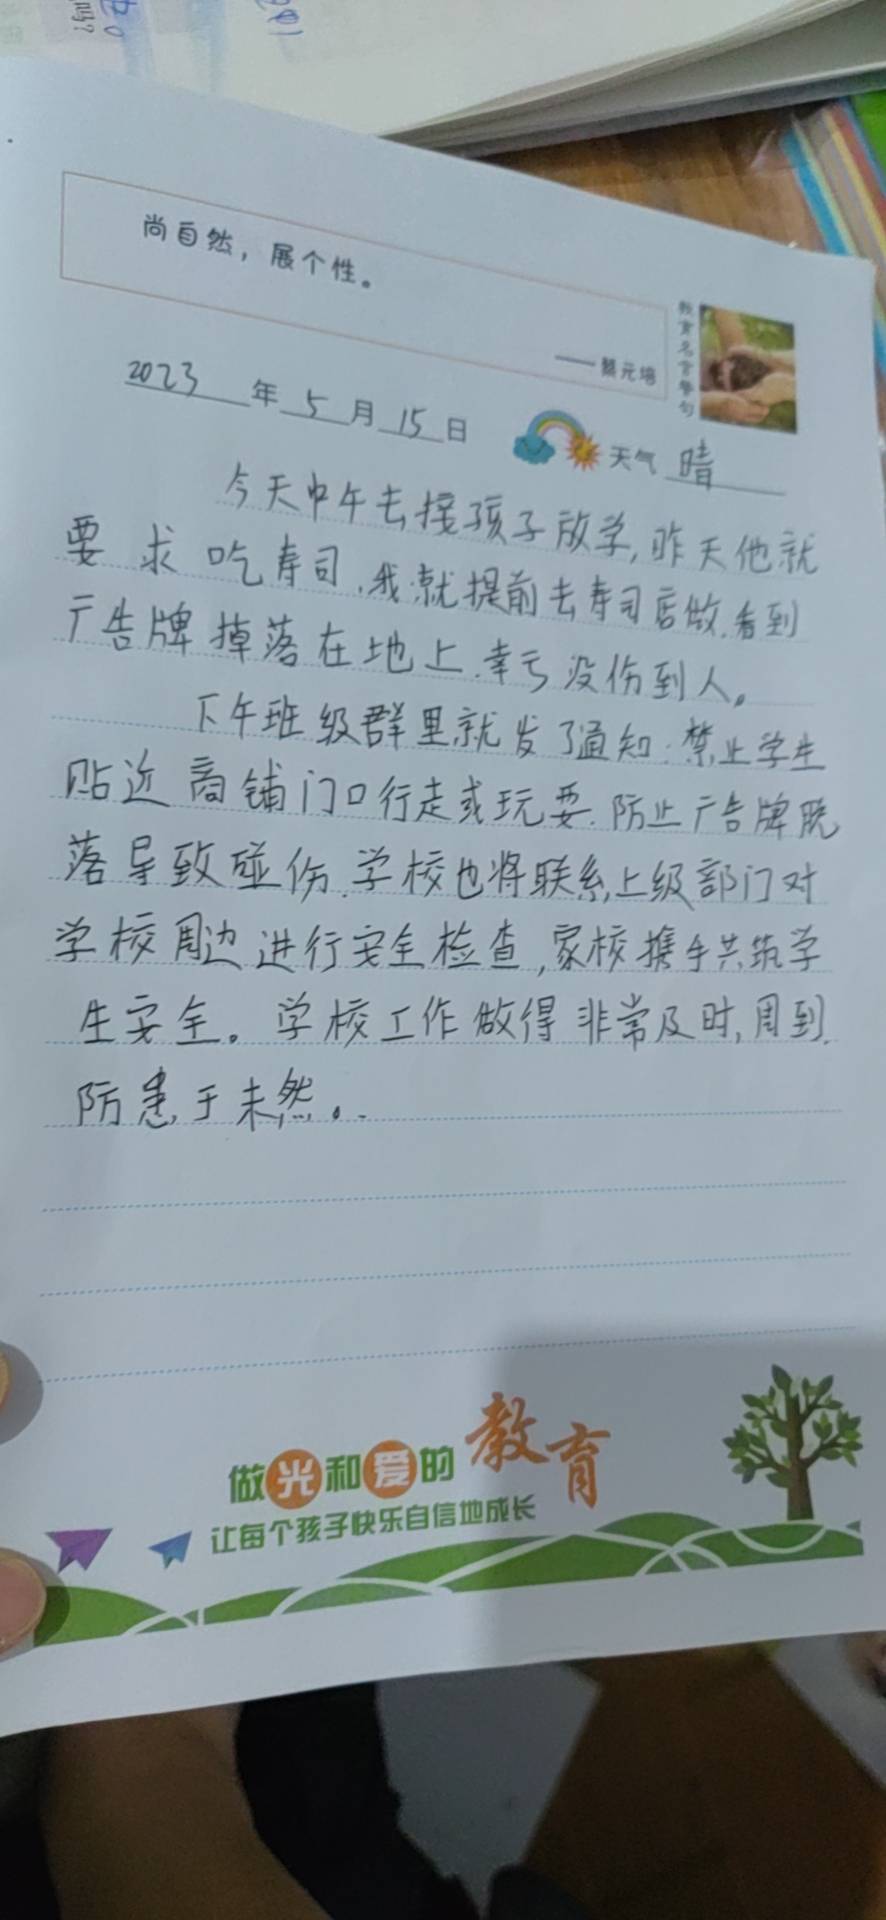 尚自然，展个性。
——蔡元培
教育名言警句
2023年5月15日
天气 晴
今天中午去接孩子放学,昨天他就
要求吃寿司,我就提前去寿司店做,看到
广告牌掉落在地上,幸亏没伤到人。
下午班级群里就发了通知:禁止学生
贴近商铺门口行走或玩耍.防止广告牌脱
落导致碰伤.学校也将联系上级部门对
学校周边进行安全检查,家校携手共筑学
生安全。学校工作做得非常及时,周到.
防患于未然。
做光和爱的教育
让每个孩子快乐自信地成长